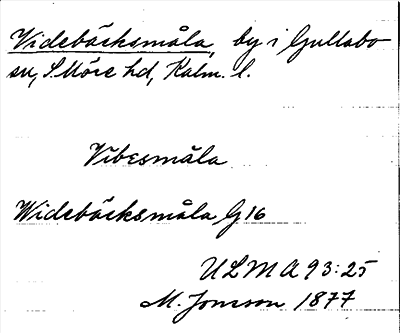 Videbäcksmåla, by i Gullabo
sn, S. Möre hd, Kalm. l.
Vibesmåla
Widebäcksmåla G16
ULMA 93:25
M. Jonsson 1877